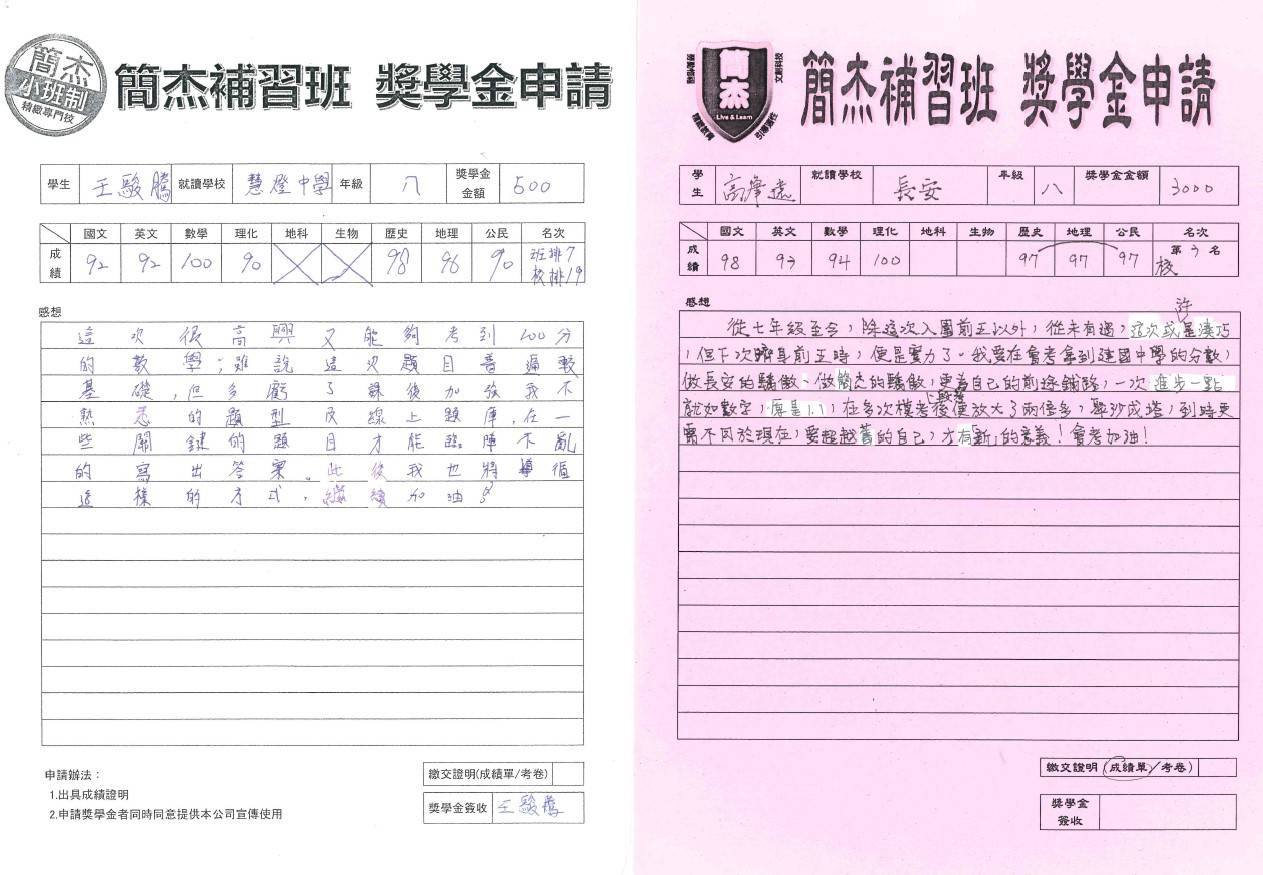 簡杰
小班制
精緻專門校
簡杰補習班 獎學金申請
學生 王駿騰 就讀學校 慧燈中學 年級 八 獎學金金額 500
國文 英文 數學 理化 地科 生物 歷史 地理 公民 名次
成績 92 92 100 90 98 96 90 班排7 校排19
感想
這次很高興又能夠考到100分
的數學;雖說這次題目普遍較
基礎,但多虧了課後加強我不
熟悉的題型及線上題庫,在一
些關鍵的題目才能臨陣不亂
的寫出答案。此後我也將遵循
這樣的方式,繼續加油
申請辦法:
1.出具成績證明
2.申請獎學金者同時同意提供本公司宣傳使用
繳交證明(成績單/考卷)
獎學金簽收 王駿騰
簡杰
Live & Learn
簡杰補習班 獎學金申請
學生 就讀學校 長安 年級 八 獎學金金額 3000
國文 英文 數學 理化 地科 生物 歷史 地理 公民 名次
成績 98 93 94 100 97 97 97 校 第 3 名
感想
從七年級至今,除這次入圍前五以外,從未有過,這次或許是湊巧
,但下次躋身前五時,便是實力了。我要在會考拿到建國中學的分數,
做長安的驕傲、做簡杰的驕傲,更為自己的前途鋪路,一次進步一點
就如數字,原是1.1,在多次模考後便放大了兩倍多,聚沙成塔,到時更
需不同於現在,要超越舊的自己,才有「新」的意義!會考加油!
繳交證明(成績單/考卷)
獎學金簽收